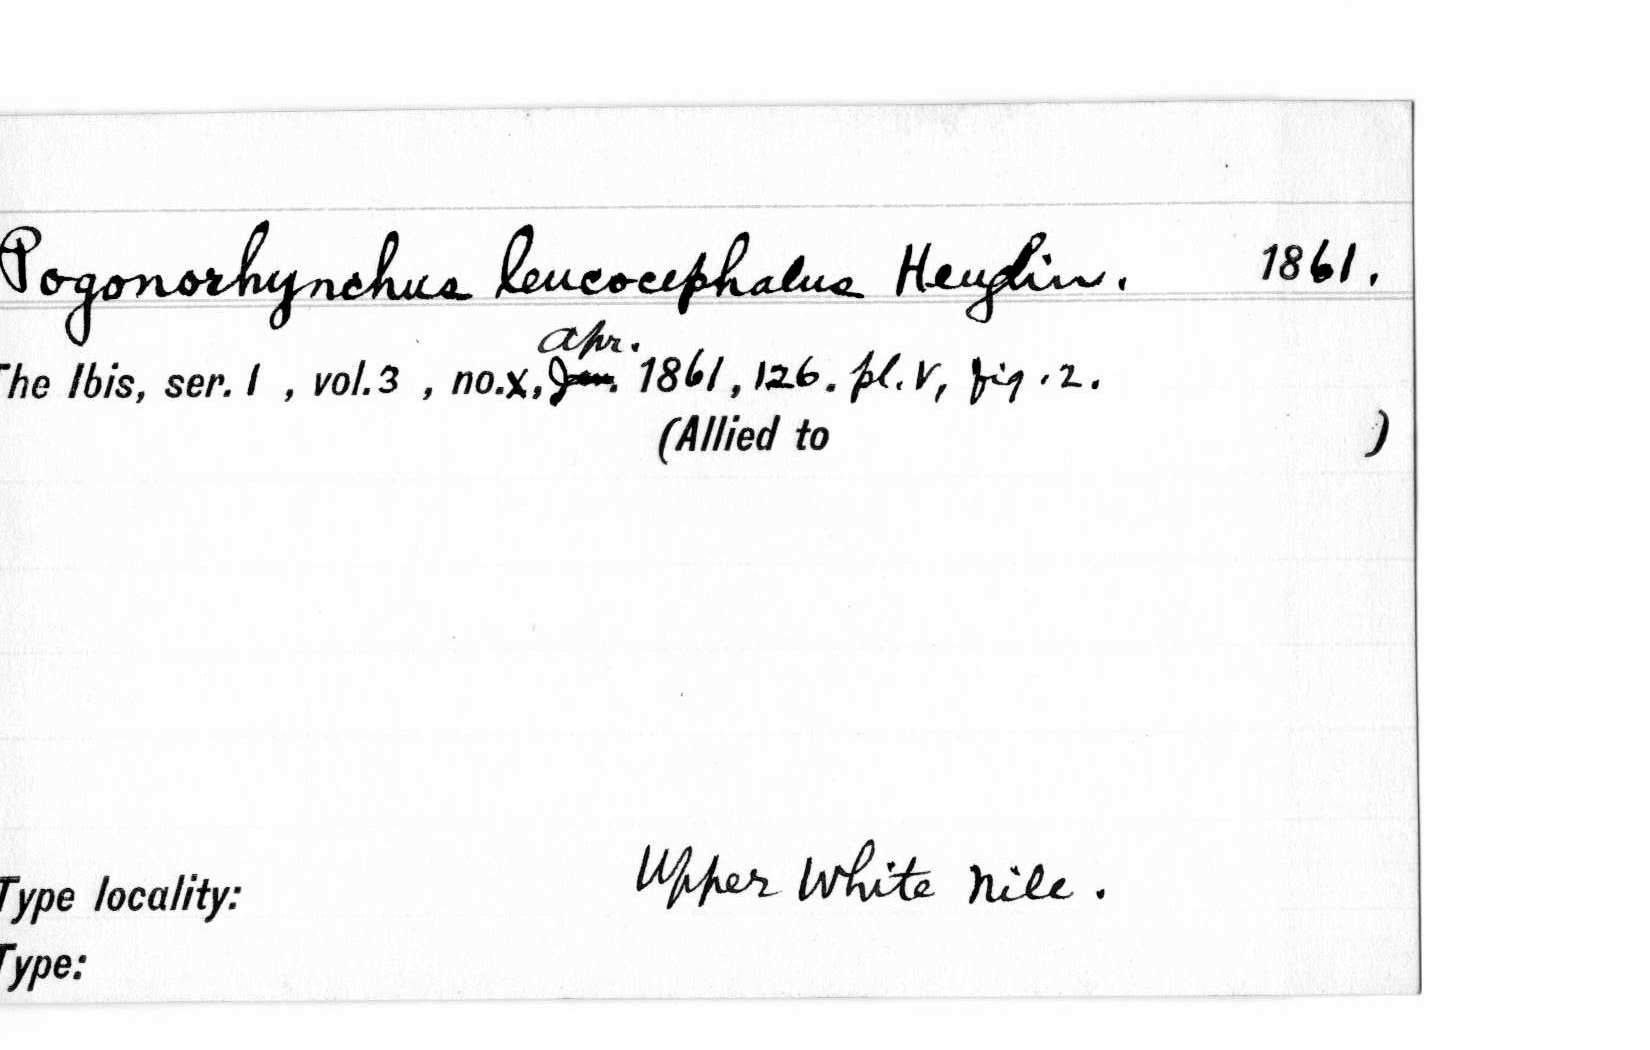 Pogonorhynchus leucocephalus Heuglin. 1861.
Apr.
The Ibis, ser. 1 , vol. 3 , no. X, Jan. 1861, 126. pl. V, fig. 2.
(Allied to )
Type locality: Upper White Nile.
Type: